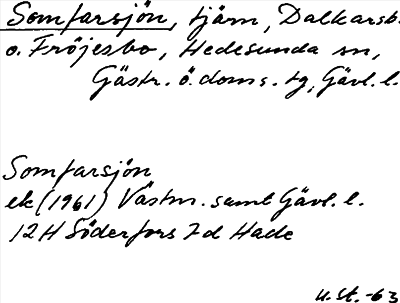 Somfarsjön, tjärn, Dalkarsb.
o. Fröjesbo, Hedesunda sn,
Gästr. ö. doms. tg, Gävl. l.
Somfarsjön
ek (1961) Västm. samt Gävl. l.
12H Söderfors 7d Hade
u. st. -63